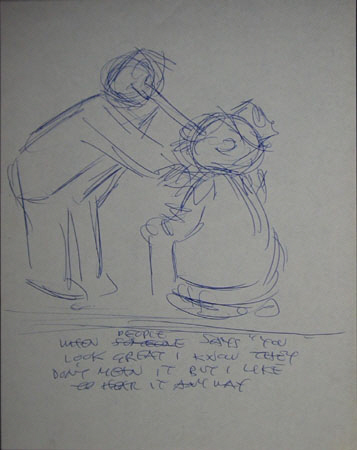 PEOPLE
WHEN SOMEONE SAYS "YOU
LOOK GREAT I KNOW THEY
DON'T MEAN IT BUT I LIKE
TO HEAR IT ANYWAY